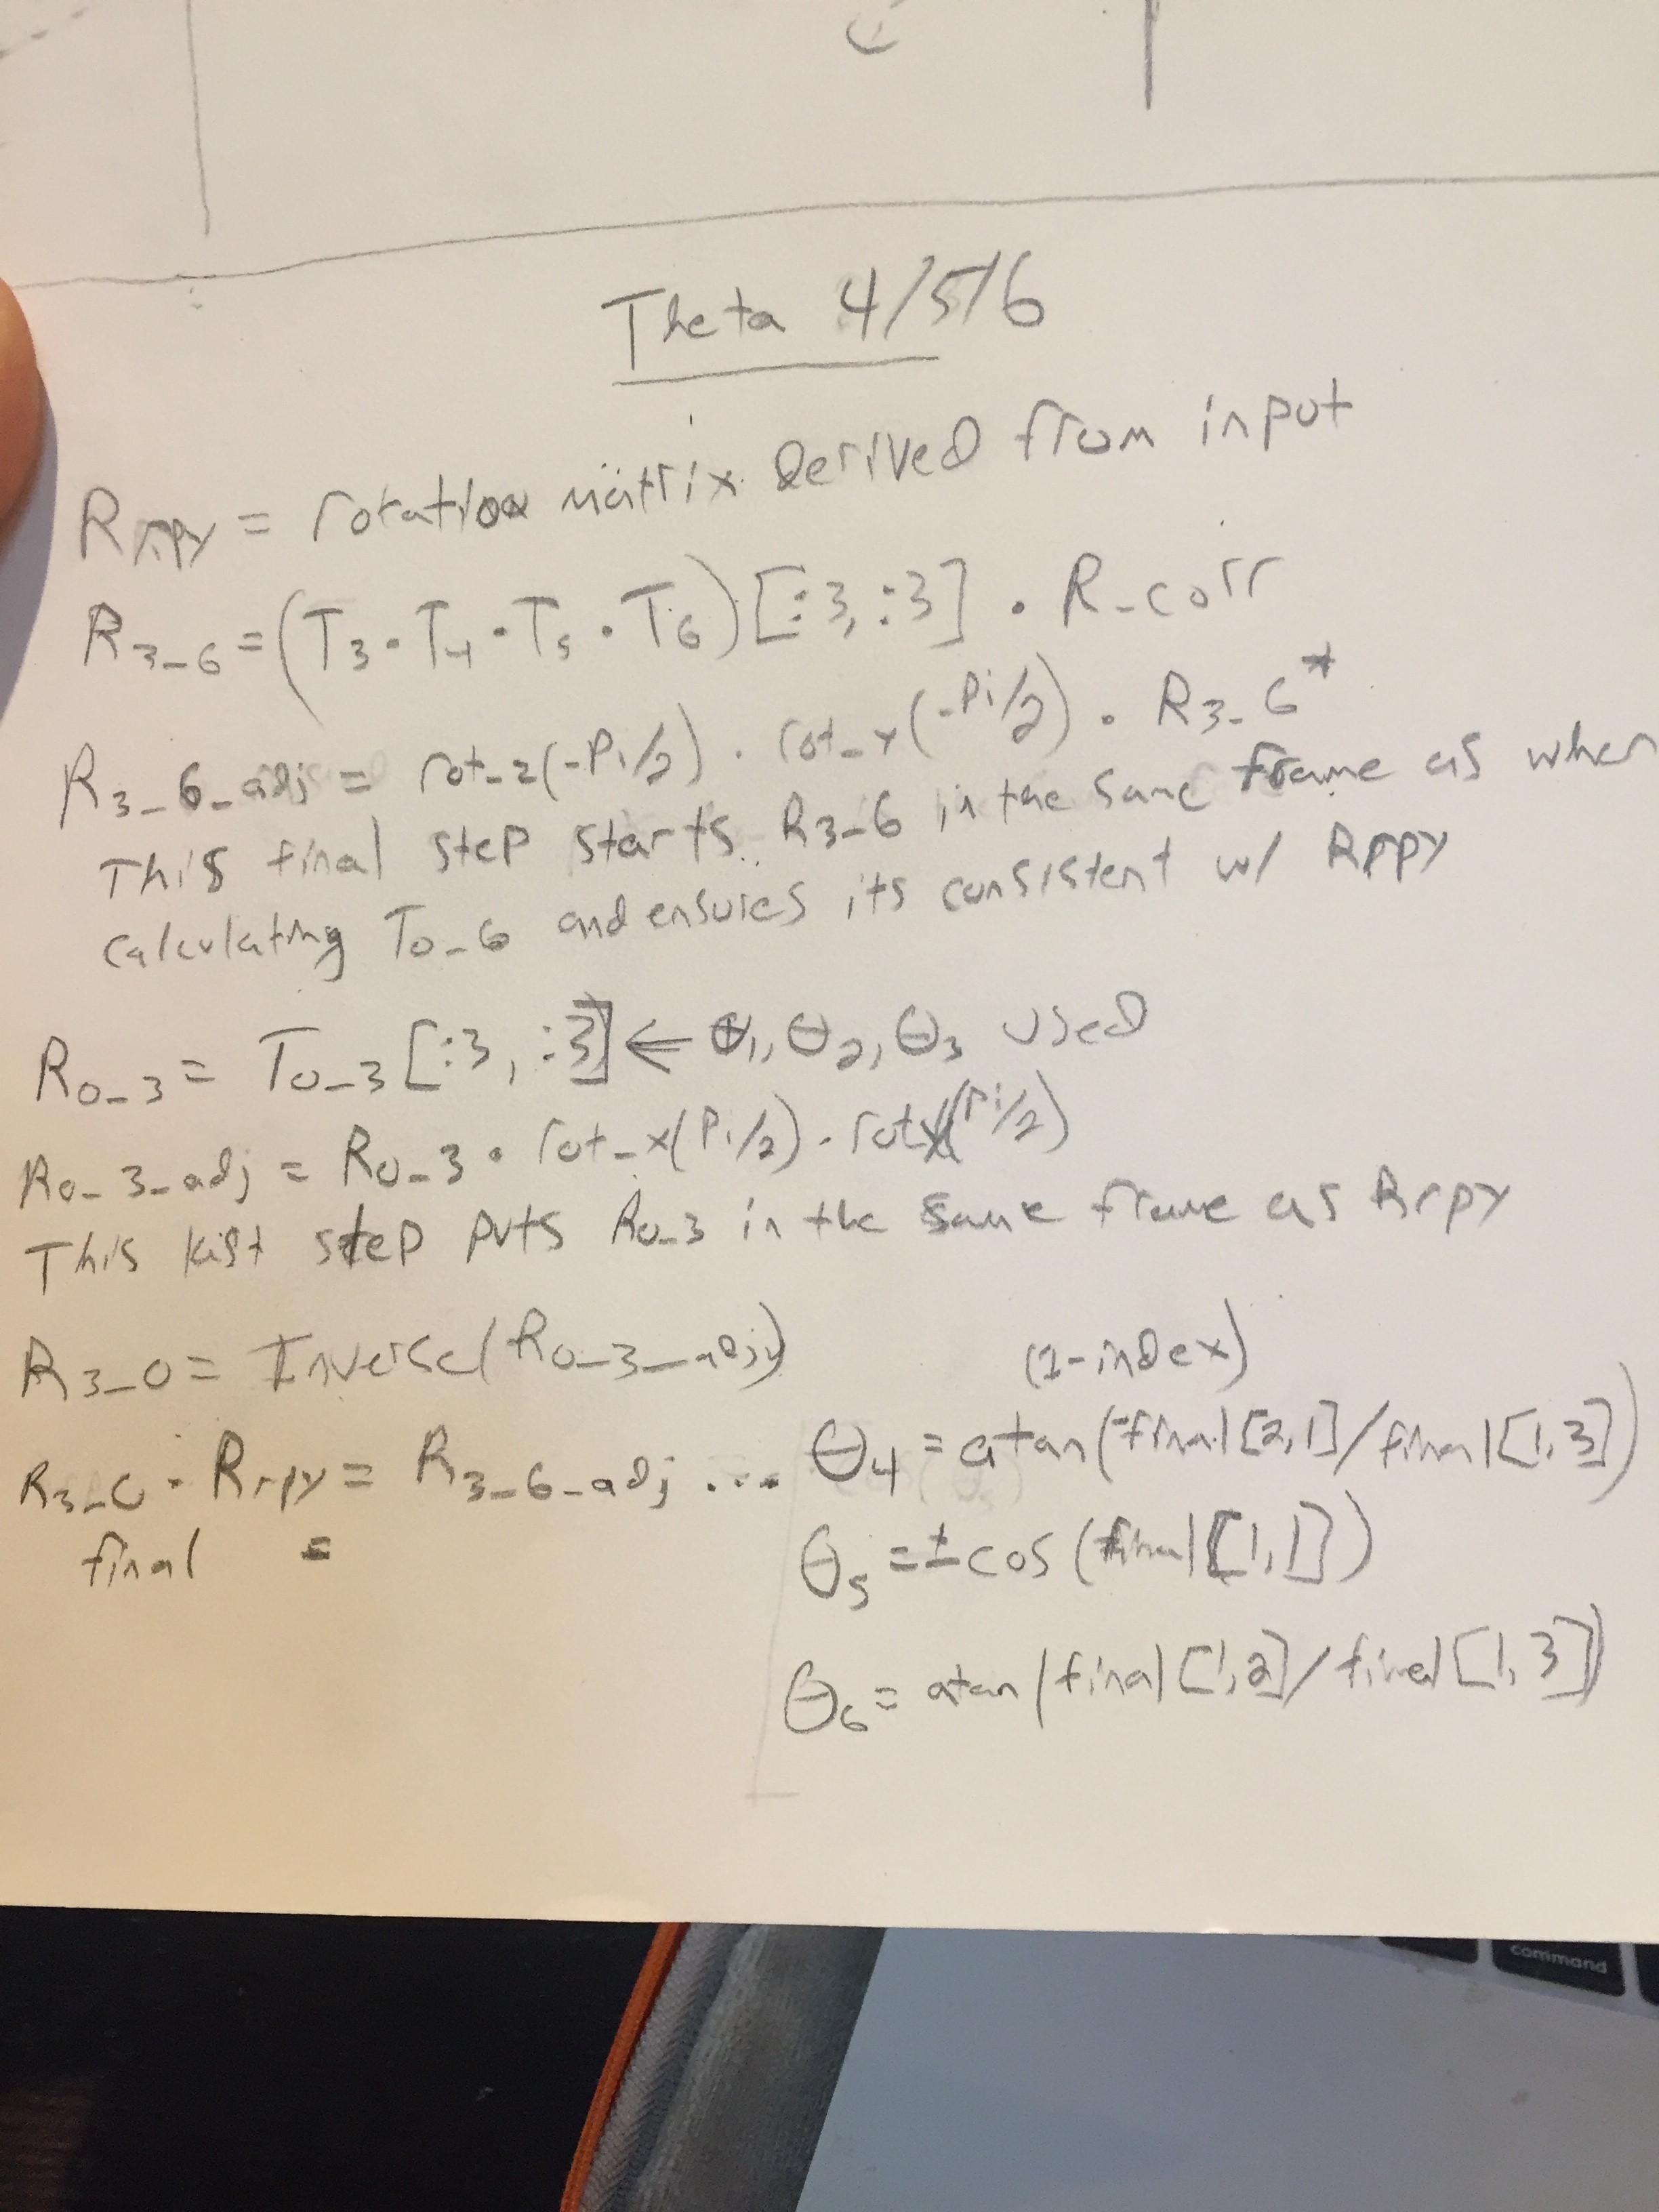 Theta 4/5/6
Rrpy = rotation matrix derived from input
R3_6 = (T3 · T4 · T5 · T6)[:3, :3] · R_corr
R3_6_adj = rot_z(-Pi/2) · rot_x(-Pi/2) · R3_6*
This final step starts R3_6 in the same frame as when
calculating T0_6 and ensures its consistent w/ Rrpy
R0_3 = T0_3[:3, :3] ← θ1, θ2, θ3 used
R0_3_adj = R0_3 · rot_x(Pi/2) · rot (Pi/2)
This last step puts R0_3 in the same frame as Rrpy
R3_0 = Inverse(R0_3_adj)
R3_0 · Rrpy = R3_6_adj ...
final =
(1-index)
θ4 = atan(-final[2,1]/final[1,3])
θ5 = ±cos(final[1,1])
θ6 = atan(final[1,2]/final[1,3])
command